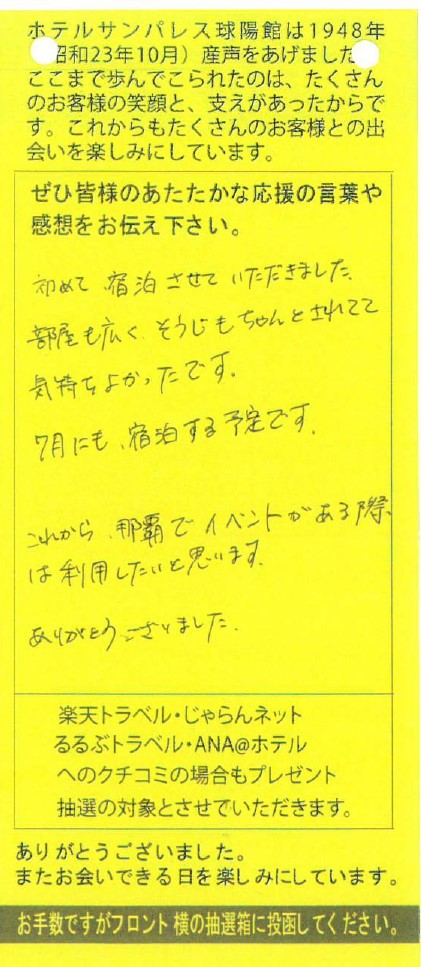 ホテルサンパレス球陽館は1948年
昭和23年10月）産声をあげました
ここまで歩んでこられたのは、たくさん
のお客様の笑顔と、支えがあったからで
す。これからもたくさんのお客様との出
会いを楽しみにしています。
ぜひ皆様のあたたかな応援の言葉や
感想をお伝え下さい。
初めて、宿泊させていただきました。
部屋も広く、そうじもちゃんとされてて
気持ちよかったです。
7月にも、宿泊する予定です。
これから、那覇でイベントがある際、
は利用したいと思います。
ありがとうございました。
楽天トラベル・じゃらんネット
るるぶトラベル・ANA@ホテル
へのクチコミの場合もプレゼント
抽選の対象とさせていただきます。
ありがとうございました。
またお会いできる日を楽しみにしています。
お手数ですがフロント横の抽選箱に投函してください。